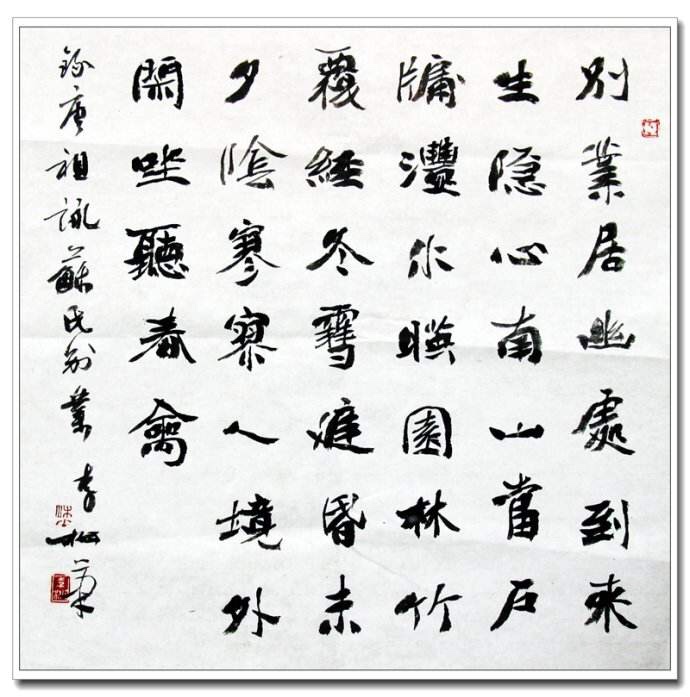 別業居幽處到來
生隐心南山當户
牖灃水暎園林竹
覆經冬雪庭昏未
夕陰寥寥人境外
閑坐聽春禽
錄唐祖詠蘇氏别業 李